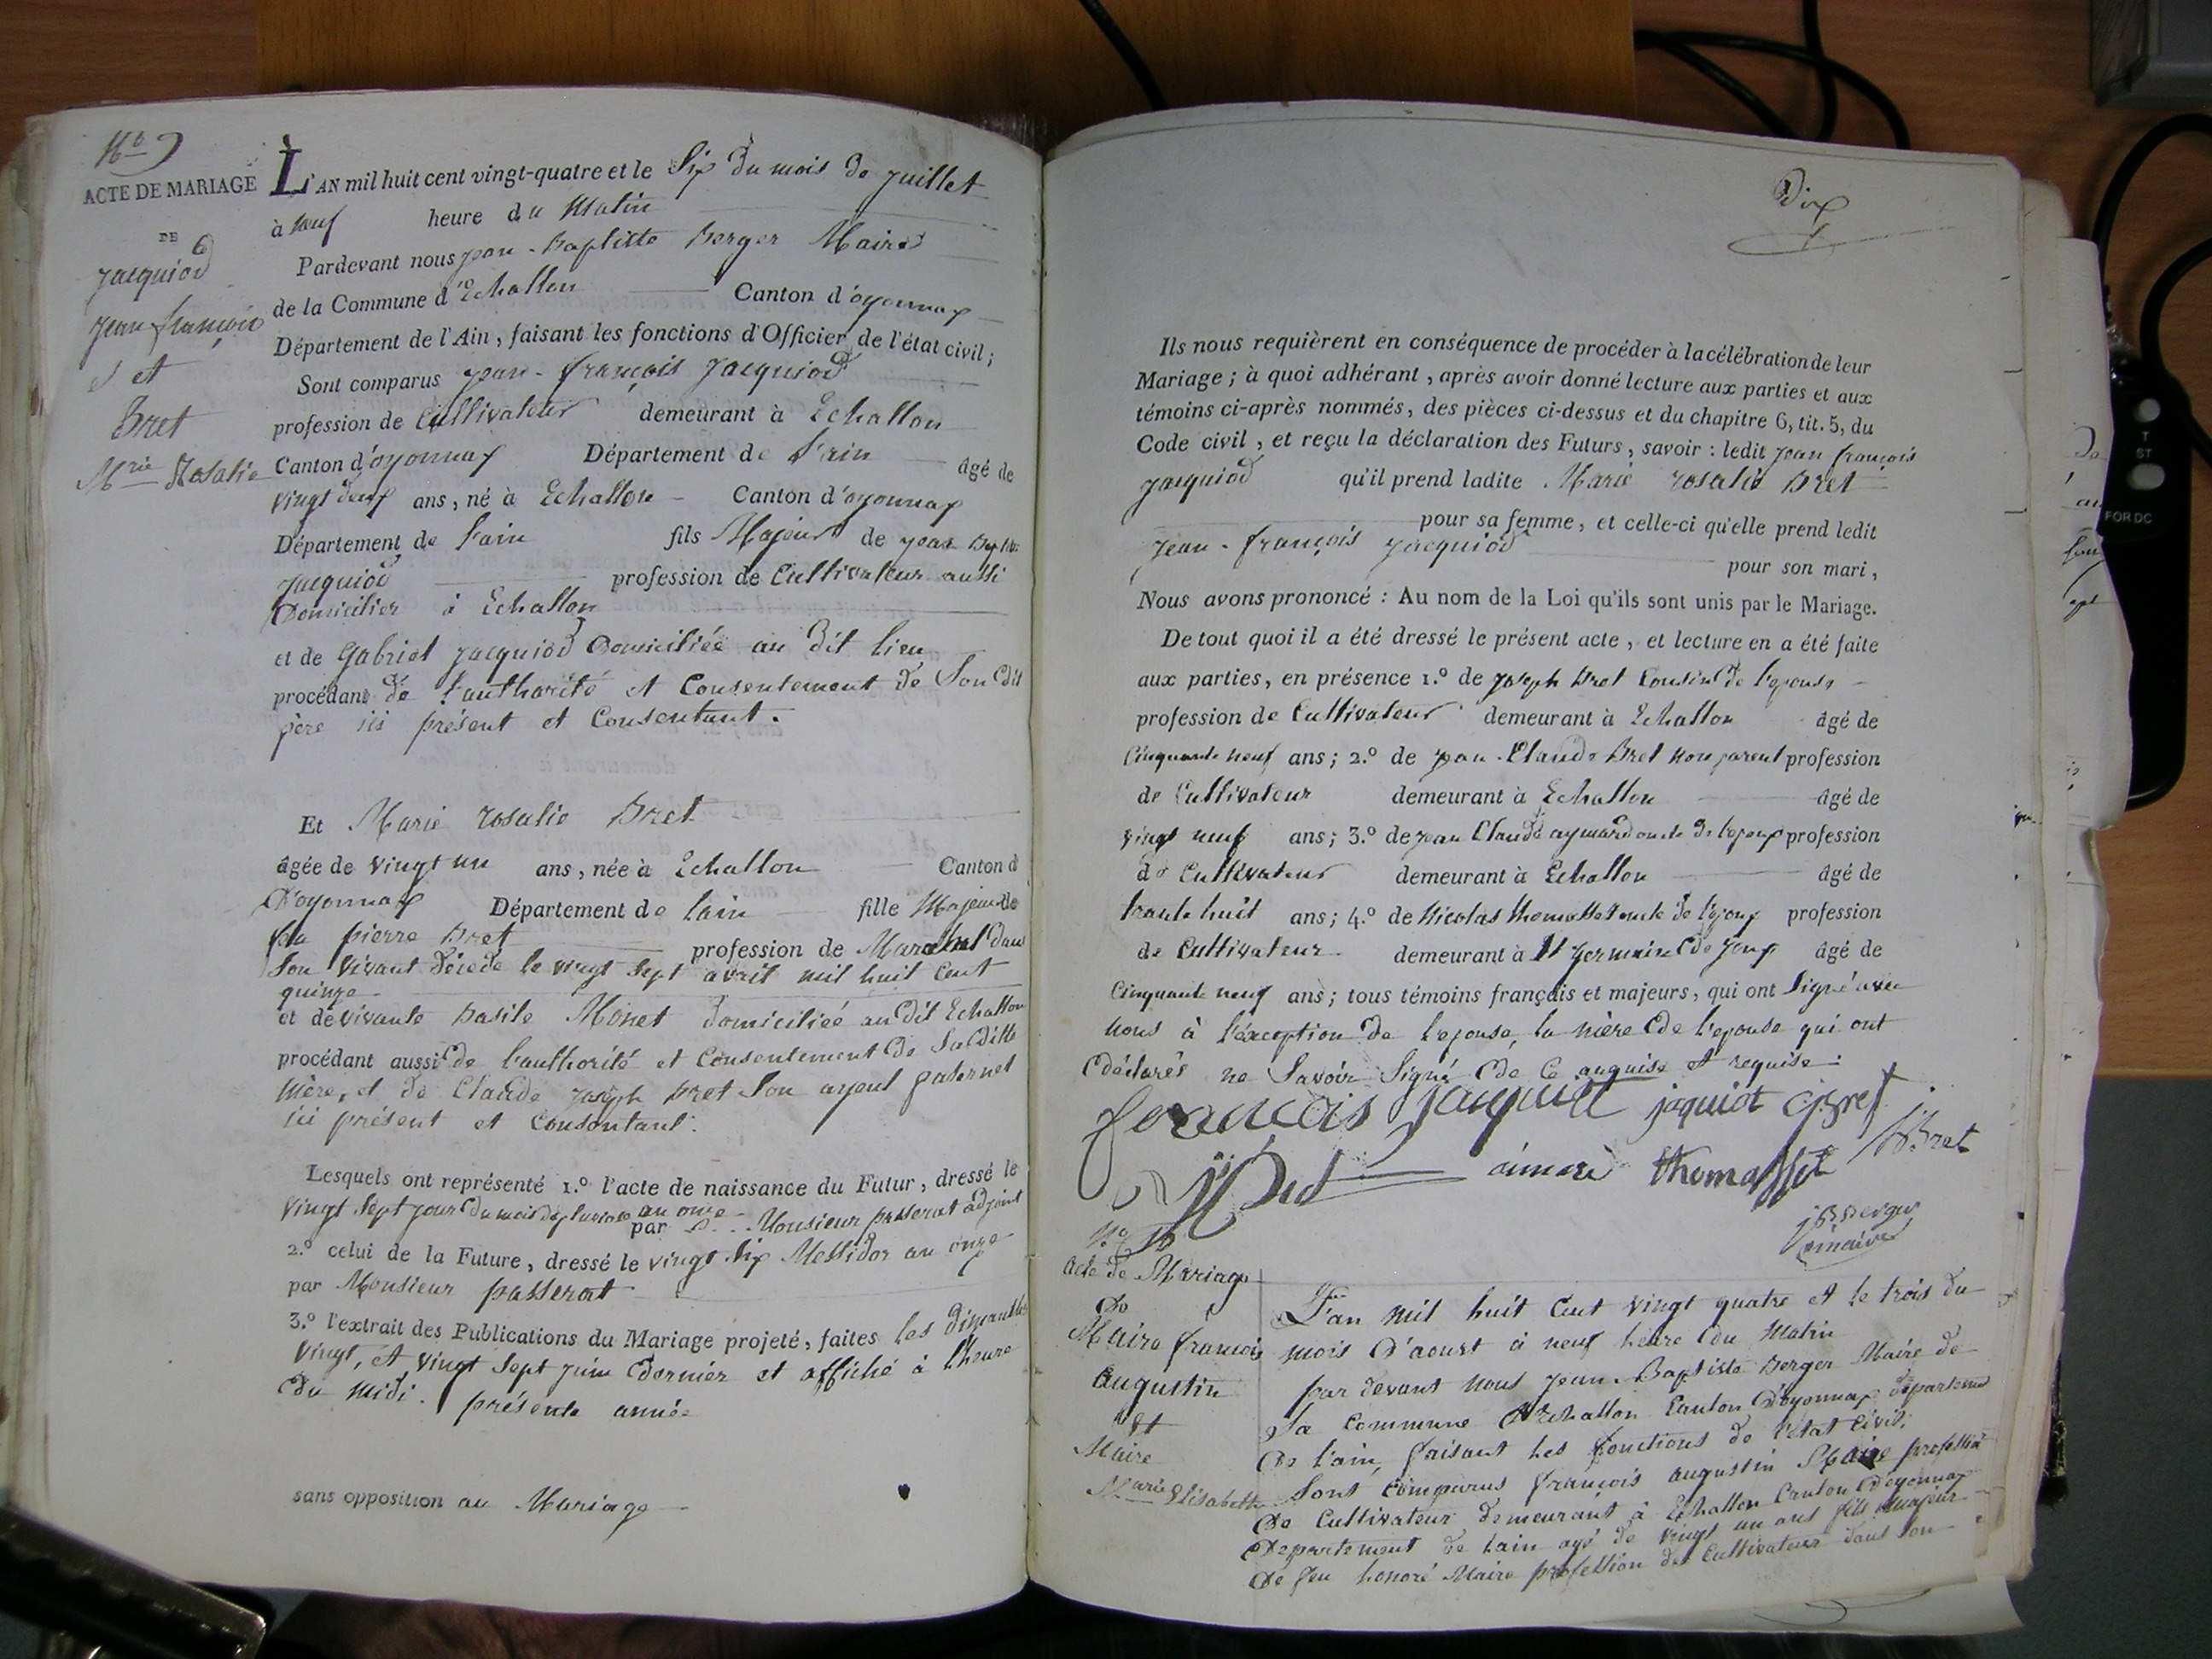 No 9
ACTE DE MARIAGE
DE
Jacquiod
Jean françois
et
Bret
Mrie Rosalie
L'AN mil huit cent vingt-quatre et le Six du mois de juillet
à neuf heure du Matin
Pardevant nous jean-Baptiste Berger Maire
de la Commune d'Echallon Canton d'oyonnax
Département de l'Ain, faisant les fonctions d'Officier de l'état civil;
Sont comparus jean-françois Jacquiod
profession de Cultivateur demeurant à Echallon
Canton d'oyonnax Département de l'ain âgé de
vingt deux ans, né à Echallon Canton d'oyonnax
Département de l'ain fils Majeur de jean Bapte
jacquiod profession de Cultivateur aussi
Domicilier à Echallon
et de Gabriel jacquiod Domiciliée au dit lieu
procédant de l'authorité et Consentement de Son dit
père ici présent et Consentant.
Et Marie rosalie Bret
âgée de vingt un ans, née à Echallon Canton d
D'oyonnax Département de l'ain fille Majeur de
feu pierre Bret profession de Marechal dans
Son vivant décédé le vingt sept avril mil huit Cent
quinze
et de vivante Basile Monet domiciliée au dit Echallon
procédant aussi de l'authorité et Consentement de Sa ditte
Mère, et de Claude joseph Bret Son ayeul paternel
ici présent et Consentant.
Lesquels ont représenté 1.º l'acte de naissance du Futur, dressé le
vingt Sept jour du mois de pluviose an onze par Monsieur passerat adjoint
2.º celui de la Future, dressé le vingt Six Messidor an onze
par Monsieur passerat
3.º l'extrait des Publications du Mariage projeté, faites les dimanches
vingt, et vingt Sept juin dernier et affiché à l'heure
du midi. présente année
sans opposition au Mariage
Dix
Ils nous requièrent en conséquence de procéder à la célébration de leur
Mariage; à quoi adhérant, après avoir donné lecture aux parties et aux
témoins ci-après nommés, des pièces ci-dessus et du chapitre 6, tit. 5, du
Code civil, et reçu la déclaration des Futurs, savoir: ledit jean françois
jacquiod qu'il prend ladite Marie rosalie Bret
pour sa femme, et celle-ci qu'elle prend ledit
jean-françois jacquiod
pour son mari,
Nous avons prononcé: Au nom de la Loi qu'ils sont unis par le Mariage.
De tout quoi il a été dressé le présent acte, et lecture en a été faite
aux parties, en présence 1.º de joseph Bret Cousin de l'epouse
profession de Cultivateur demeurant à Echallon âgé de
Cinquante neuf ans; 2.º de jean-Claude Bret non parent profession
de Cultivateur demeurant à Echallon âgé de
vingt neuf ans; 3.º de jean Claude aymard oncle de l'epoux profession
de Cultivateur demeurant à Echallon âgé de
trante huit ans; 4.º de Nicolas thomasset oncle de l'epoux profession
de Cultivateur demeurant à St germain de joux âgé de
Cinquante neuf ans; tous témoins français et majeurs, qui ont Signé avec
nous à l'éxception de l'epouse, la mère de l'epouse qui ont
déclarés ne Savoir Signé de Ce anquise et requise.
francois jacquiot jaquiot cjbret
JJBret aimard thomasset JBret
jBBerger
maire
No 10
Acte de Mariage
De
Maire françois
Augustin
Et
Maire
Marie Elisabeth
L'an mil huit Cent vingt quatre et le trois du
mois d'aoust à neuf heure du Matin
par devant nous jean-Baptiste Berger Maire de
la Commune d'Echallon Canton D'oyonnax departement
De l'ain, faisant les fonctions de l'état Civil;
Sont comparus françois augustin Maire profession
De Cultivateur demeurant à Echallon Canton D'oyonnax
Departement de l'ain agé de vingt un ans fils Majeur
De feu honoré Maire profession de Cultivateur dans Son
FOR DC
T
ST